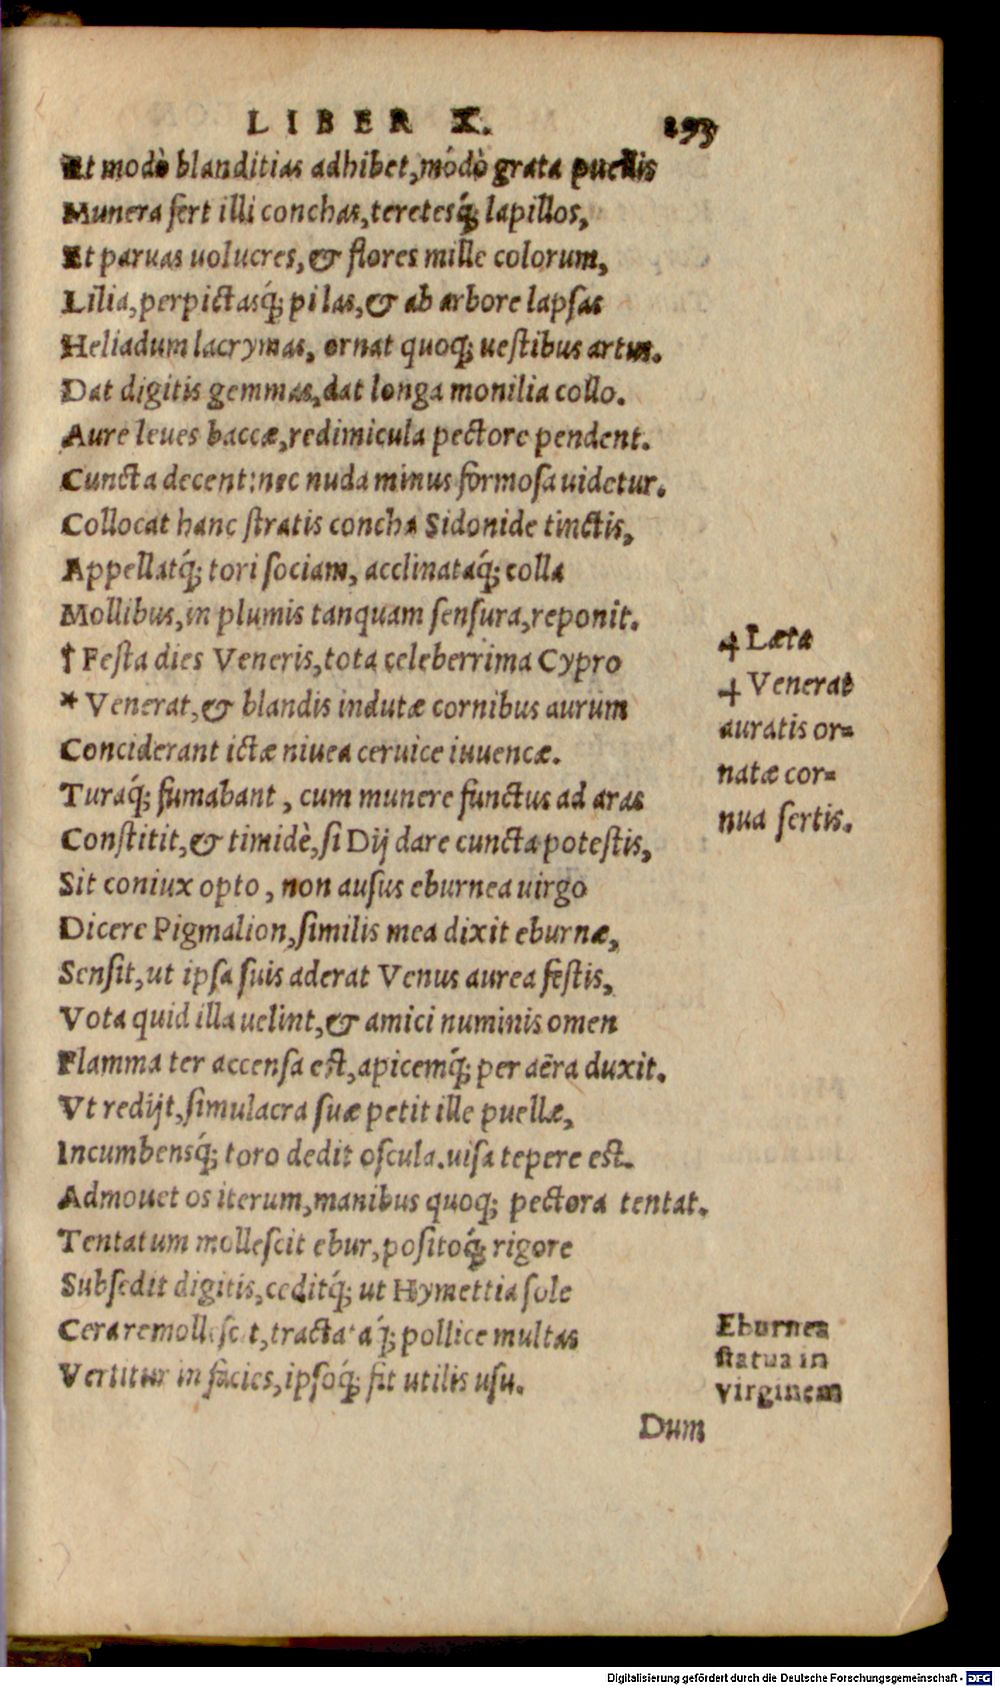 LIBER X. 293
Et modò blanditias adhibet, módò grata puellis
Munera fert illi conchas, teretesq́; lapillos,
Et paruas uolucres, & flores mille colorum,
Lilia, perpictasq́; pilas, & ab arbore lapsas
Heliadum lacrymas, ornat quoq; uestibus artus.
Dat digitis gemmas, dat longa monilia collo.
Aure leues baccæ, redimicula pectore pendent.
Cuncta decent: nec nuda minus formosa uidetur.
Collocat hanc stratis concha Sidonide tinctis,
Appellatq́; tori sociam, acclinataq́; colla
Mollibus, in plumis tanquam sensura, reponit.
† Festa dies Veneris, tota celeberrima Cypro
* Venerat, & blandis indutæ cornibus aurum
Conciderant ictæ niuea ceruice iuuencæ.
Turaq́; fumabant, cum munere functus ad aras
Constitit, & timidè, si Dij dare cuncta potestis,
Sit coniux opto, non ausus eburnea uirgo
Dicere Pigmalion, similis mea dixit eburnæ,
Sensit, ut ipsa suis aderat Venus aurea festis,
Vota quid illa uelint, & amici numinis omen
Flamma ter accensa est, apicemq́; per aëra duxit.
Vt redijt, simulacra suæ petit ille puellæ,
Incumbensq́; toro dedit oscula. uisa tepere est.
Admouet os iterum, manibus quoq; pectora tentat.
Tentatum mollescit ebur, positoq́; rigore
Subsedit digitis, ceditq́; ut Hymettia sole
Cera remollescit, tractataq́; pollice multas
Vertitur in facies, ipsoq́; fit utilis usu.
Dum
⸭ Læta
⸭ Venerat
auratis or=
natæ cor=
nua sertis.
Eburnea
statua in
virginem
Digitalisierung gefördert durch die Deutsche Forschungsgemeinschaft - DFG